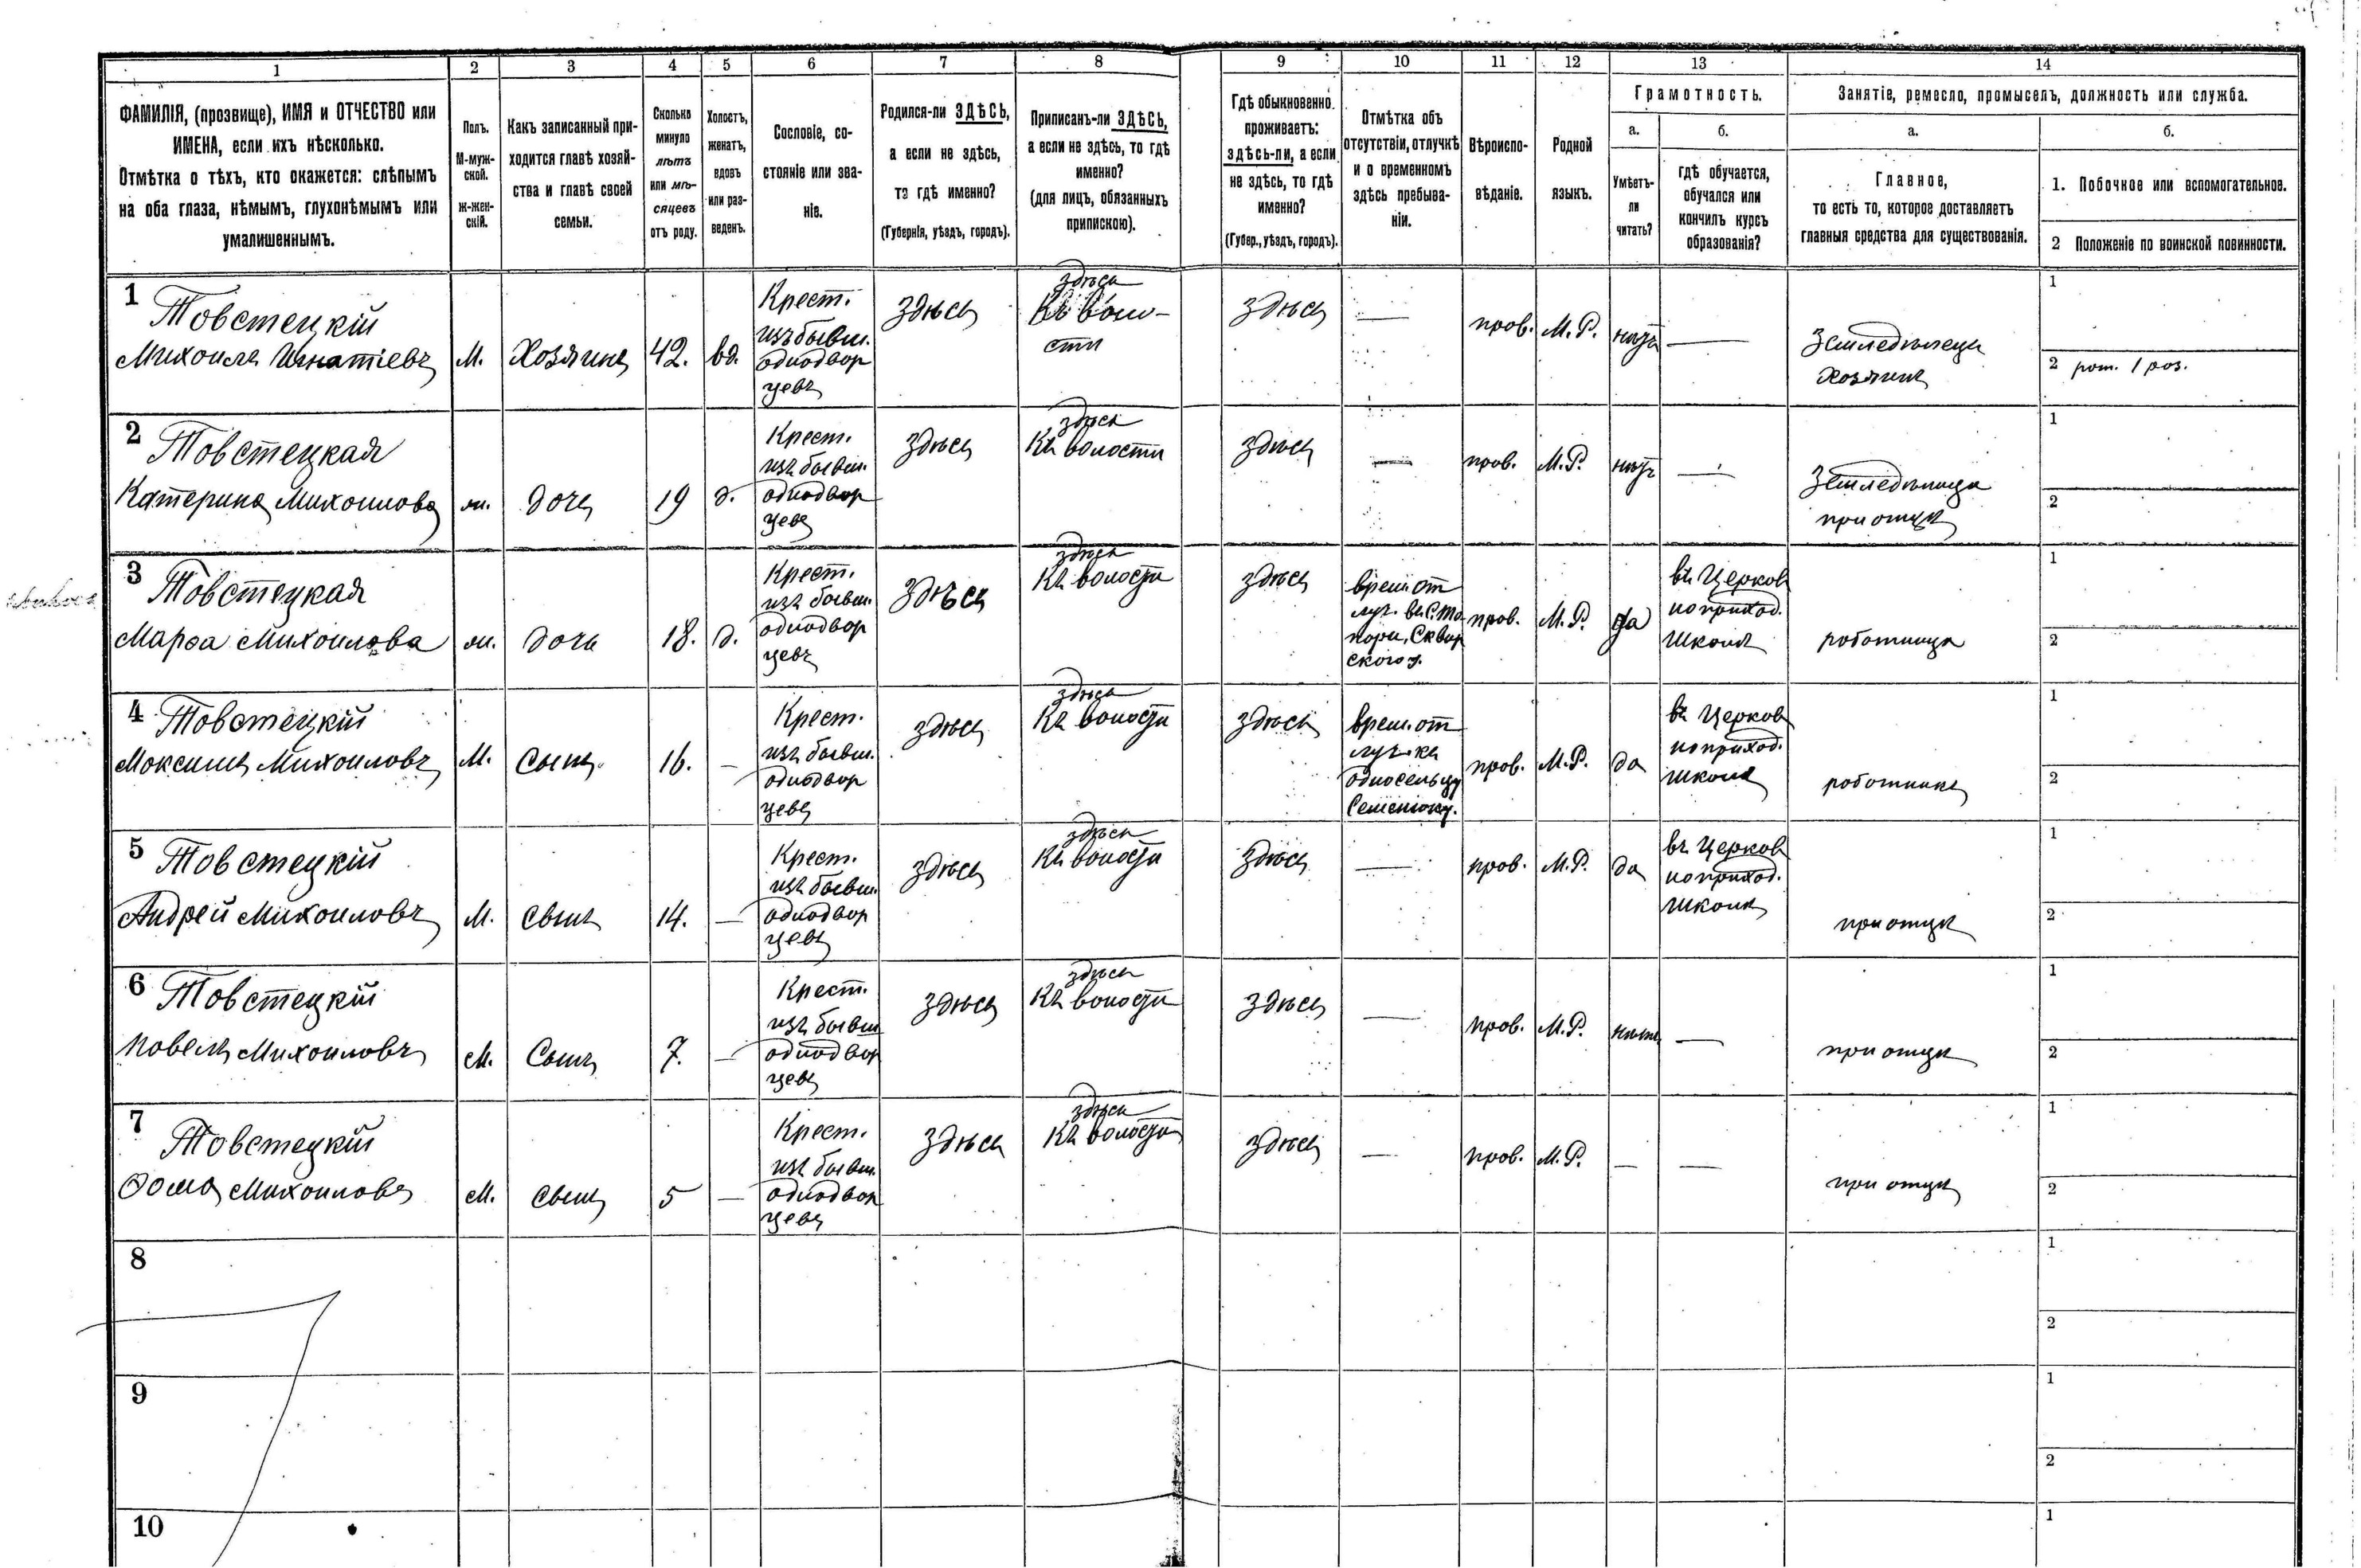 1 2 3 4 5 6 7 8 9 10 11 12 13 14
ФАМИЛІЯ, (прозвище), ИМЯ и ОТЧЕСТВО или
ИМЕНА, если ихъ нѣсколько.
Отмѣтка о тѣхъ, кто окажется: слѣпымъ
на оба глаза, нѣмымъ, глухонѣмымъ или
умалишеннымъ.
Полъ.
М-муж-
ской.
Ж-жен-
скій.
Какъ записанный при-
ходится главѣ хозяй-
ства и главѣ своей
семьи.
Сколько
минуло
лѣтъ
или мѣ-
сяцевъ
отъ роду.
Холостъ,
женатъ,
вдовъ
или раз-
веденъ.
Сословіе, со-
стояніе или зва-
ніе.
Родился-ли ЗДѢСЬ,
а если не здѣсь,
то гдѣ именно?
(Губернія, уѣздъ, городъ).
Приписанъ-ли ЗДѢСЬ,
а если не здѣсь, то гдѣ
именно?
(для лицъ, обязанныхъ
припискою).
Гдѣ обыкновенно
проживаетъ:
здѣсь-ли, а если
не здѣсь, то гдѣ
именно?
(Губер., уѣздъ, городъ).
Отмѣтка объ
отсутствіи, отлучкѣ
и о временномъ
здѣсь пребыва-
ніи.
Вѣроиспо-
вѣданіе.
Родной
языкъ.
Грамотность.
а.
Умѣетъ-
ли
читать?
б.
гдѣ обучается,
обучался или
кончилъ курсъ
образованія?
Занятіе, ремесло, промыселъ, должность или служба.
а.
Главное,
то есть то, которое доставляетъ
главныя средства для существованія.
б.
1. Побочное или вспомогательное.
2 Положеніе по воинской повинности.
1
Товстецкій
Михоилъ Игнатіевъ
М.
Хозяинъ
42.
вд.
Крест.
изъ бывш.
однодвор
цевъ
здѣсь
здѣсь
Къ воло-
сти
здѣсь
—
прав.
М.Р.
нѣтъ
—
Земледѣлецъ
Хозяинъ
1
2
2
Товстецкая
Катерина Михоилова
ж.
дочь
19
д.
Крест.
изъ бывш.
однодвор
цевъ
здѣсь
здѣсь
Къ волости
здѣсь
—
прав.
М.Р.
нѣтъ
—
Земледѣлица
при отцѣ
1
2
3
Товстецкая
Марѳа Михоилова
ж.
дочь
18.
д.
Крест.
изъ бывш.
однодвор
цевъ
здѣсь
здѣсь
Къ волости
здѣсь
врем. от
луч. въ с.
Сквир
ского у.
прав.
М.Р.
да
въ Церков
но приход.
школѣ
роботница
1
2
4
Товстецкій
Моксимъ Михоиловъ
М.
Сынъ
16.
—
Крест.
изъ бывш.
однодвор
цевъ
здѣсь
здѣсь
Къ волости
здѣсь
врем. от
луч. къ
односельцу
Семенюку.
прав.
М.Р.
да
въ Церков
но приход.
школѣ
роботникъ
1
2
5
Товстецкій
Андрей Михоиловъ
М.
Сынъ
14.
—
Крест.
изъ бывш.
однодвор
цевъ
здѣсь
здѣсь
Къ волости
здѣсь
—
прав.
М.Р.
да
въ Церков
но приход.
школѣ
при отцѣ
1
2
6
Товстецкій
Повелъ Михоиловъ
М.
Сынъ
7.
—
Крест.
изъ бывш
однодвор
цевъ
здѣсь
здѣсь
Къ волости
здѣсь
—
прав.
М.Р.
нѣтъ
—
при отцѣ
1
2
7
Товстецкій
Ѳома Михоиловъ
М.
Сынъ
5
—
Крест.
изъ бывш.
однодвор
цевъ
здѣсь
здѣсь
Къ волости
здѣсь
—
прав.
М.Р.
—
—
при отцѣ
1
2
8
1
2
9
1
2
10
1